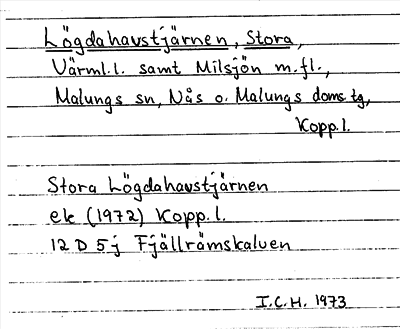 Lögdahavstjärnen, Stora,
Värml.l. samt Milsjön m.fl.,
Malungs sn, Nås o. Malungs doms.tg,
Kopp.l.
Stora Lögdahavstjärnen
ek (1972) Kopp.l.
12 D 5j Fjällrämskalven
I.C.H. 1973